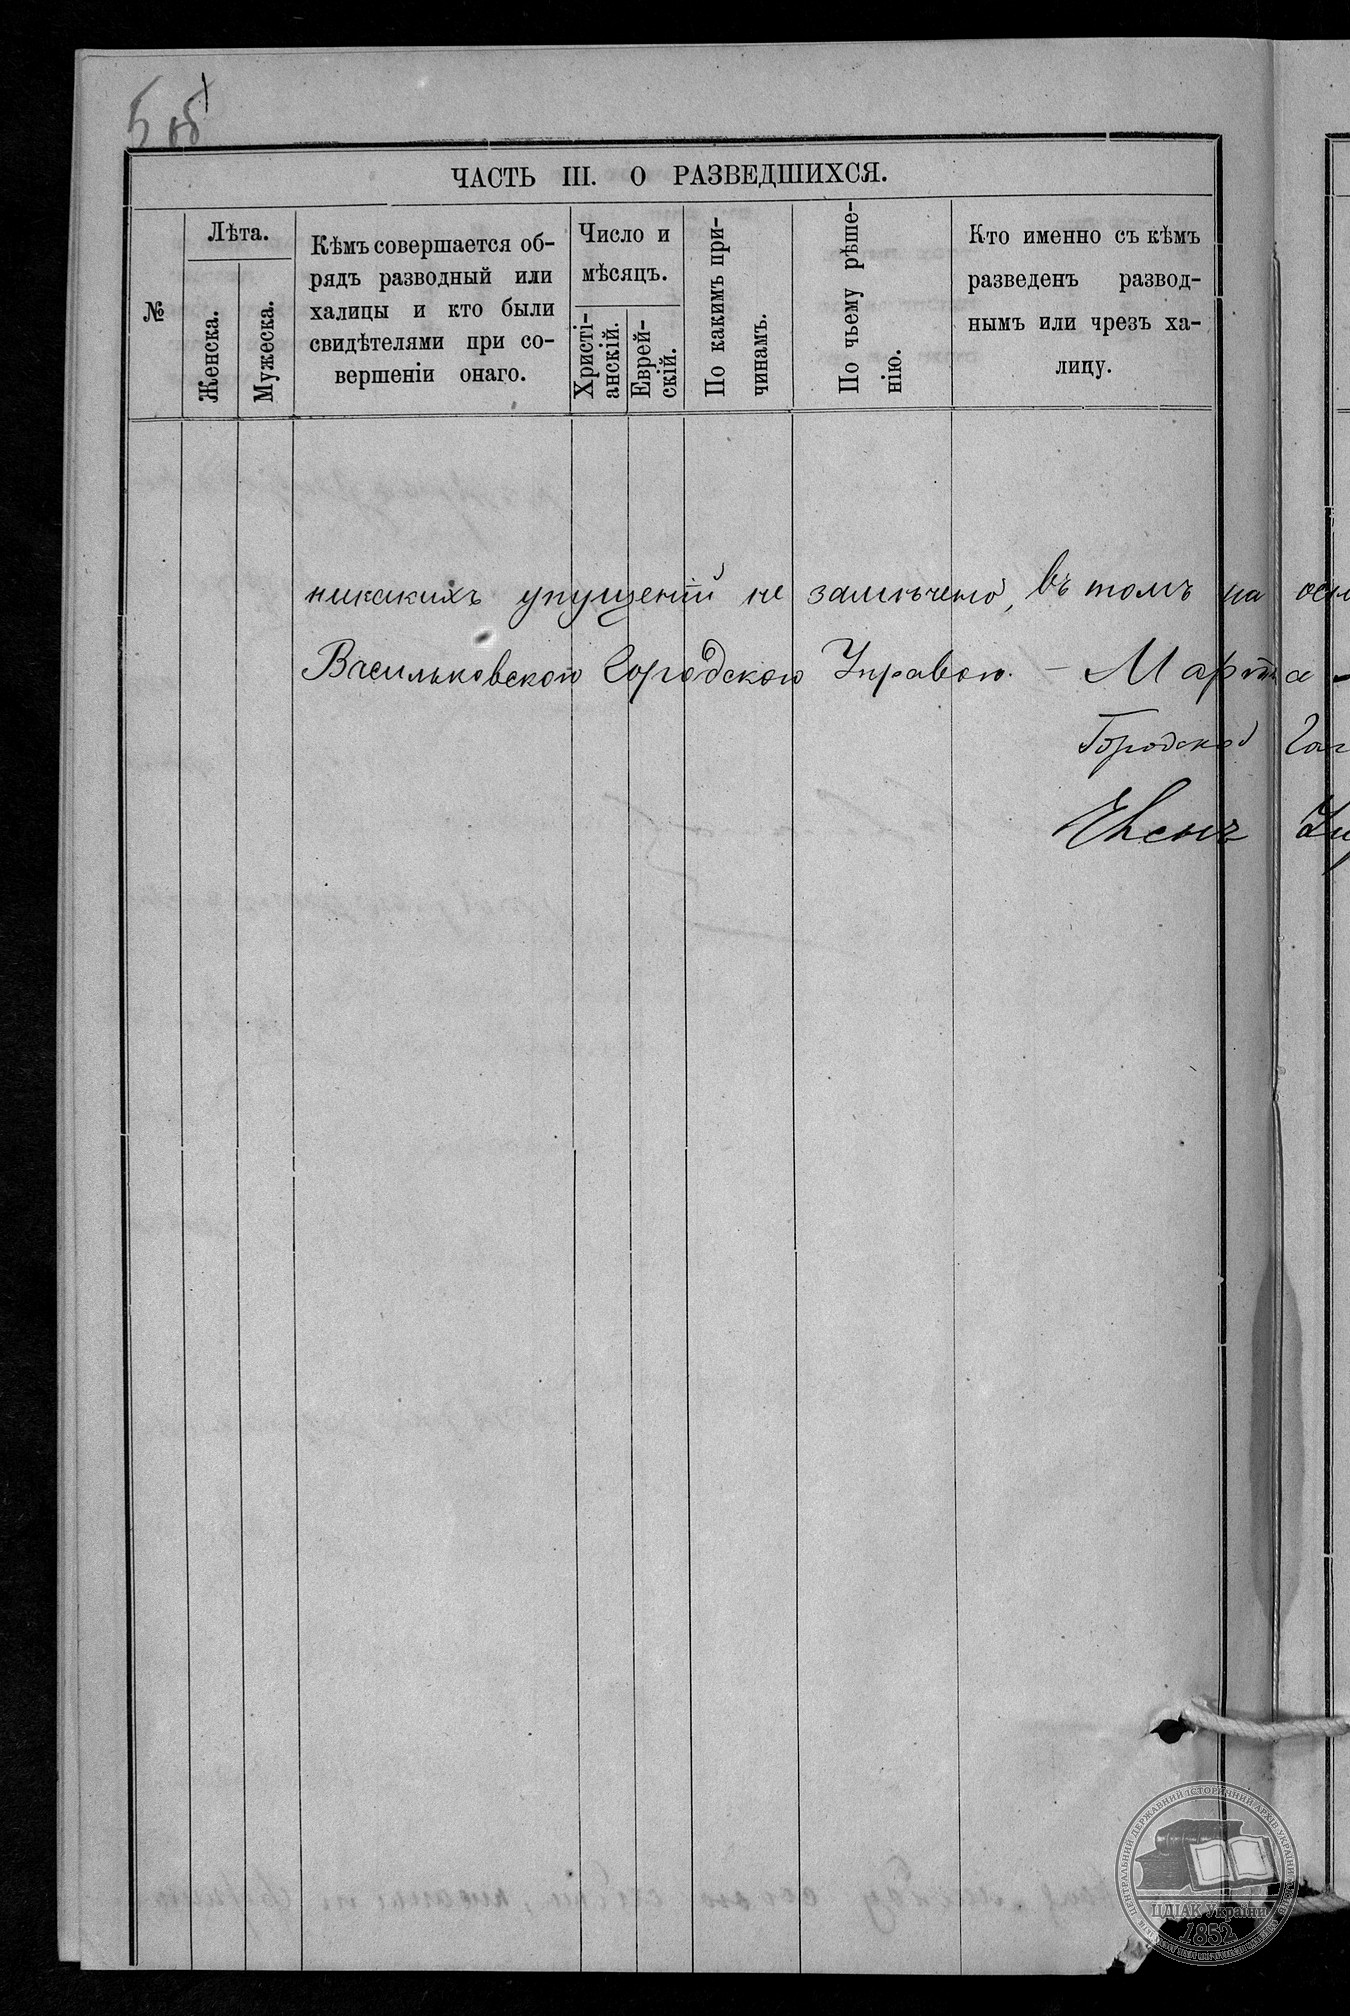 5 об
ЧАСТЬ III. О РАЗВЕДШИХСЯ.
№
Лѣта.
Женска.
Мужеска.
Кѣмъ совершается об-
рядъ разводный или
халицы и кто были
свидѣтелями при со-
вершеніи онаго.
Число и
мѣсяцъ.
Христі-
анскій.
Еврей-
скій.
По какимъ при-
чинамъ.
По чьему рѣше-
нію.
Кто именно съ кѣмъ
разведенъ развод-
нымъ или чрезъ ха-
лицу.
никакихъ упущеній не замѣчено, въ томъ на
Васильковскою Городскою Управою. – Марта
Городской
Членъ
ЦЕНТРАЛЬНИЙ ДЕРЖАВНИЙ ІСТОРИЧНИЙ АРХІВ УКРАЇНИ
ЦДІАК України
1852